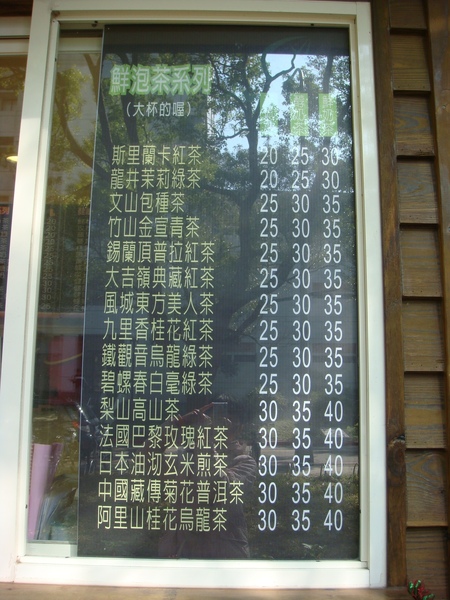 鮮泡茶系列
（大杯的喔）
斯里蘭卡紅茶 20 25 30
龍井茉莉綠茶 20 25 30
文山包種茶 25 30 35
竹山金宣青茶 25 30 35
錫蘭頂普拉紅茶 25 30 35
大吉嶺典藏紅茶 25 30 35
風城東方美人茶 25 30 35
九里香桂花紅茶 25 30 35
鐵觀音烏龍綠茶 25 30 35
碧螺春白毫綠茶 25 30 35
梨山高山茶 30 35 40
法國巴黎玫瑰紅茶 30 35 40
日本油沏玄米煎茶 30 35 40
中國藏傳菊花普洱茶 30 35 40
阿里山桂花烏龍茶 30 35 40